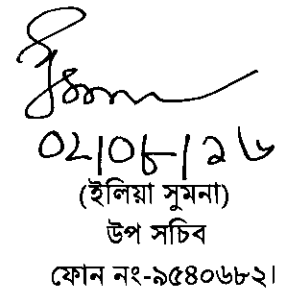 ০২|০৮|১৬
(ইলিয়া সুমনা)
উপ সচিব
ফোন নং-৯৫৪০৬৮২।